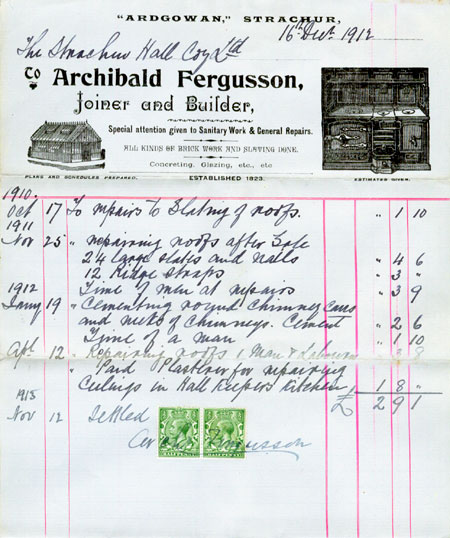 "ARDGOWAN," STRACHUR,
16th Decr 1912
The Strachur Hall Coy Ltd
To Archibald Fergusson,
Joiner and Builder,
Special attention given to Sanitary Work & General Repairs.
ALL KINDS OF BRICK WORK AND SLATING DONE.
Concreting, Glezing, etc., etc
PLANS AND SCHEDULES PREPARED.
ESTABLISHED 1823.
ESTIMATES GIVEN.
1910
Oct 17 To repairs to Slating of roofs. " 1 10
1911
Nov 25 " repairing roofs after Gale
24 large slates and nails " 4 6
12 Ridge Straps " 3 "
Time of men at repairs " 3 9
1912
Jany 19 " Cementing round chimney cans
and of chimneys. Cement " 2 6
Time of a man " 1 10
Apl. 12 " Repairing roofs 1 Man & Labourer " 3 8
" Paid Plasterer for repairing
Ceilings in Hall Keepers Kitchen 1 8 "
£ 2 9 1
1913
Nov 12 Settled
Fergusson
HALFPENNY HALFPENNY